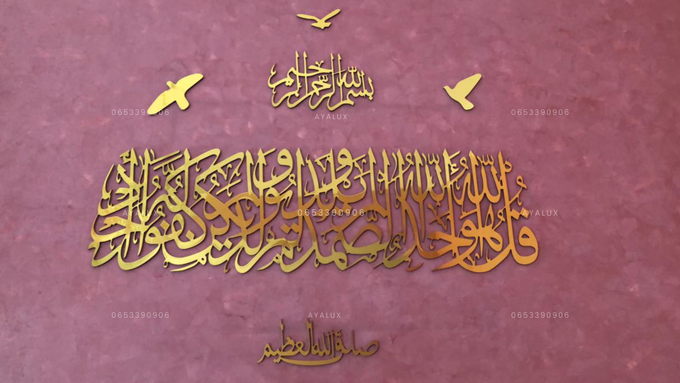 بسم الله الرحمن الرحيم
0653390906 0653390906
AYALUX
قل هو الله أحد الله الصمد لم يلد ولم يولد ولم يكن له كفوا أحد
AYALUX 0653390906 AYALUX
0653390906 AYALUX 0653390906
صدق الله العظيم